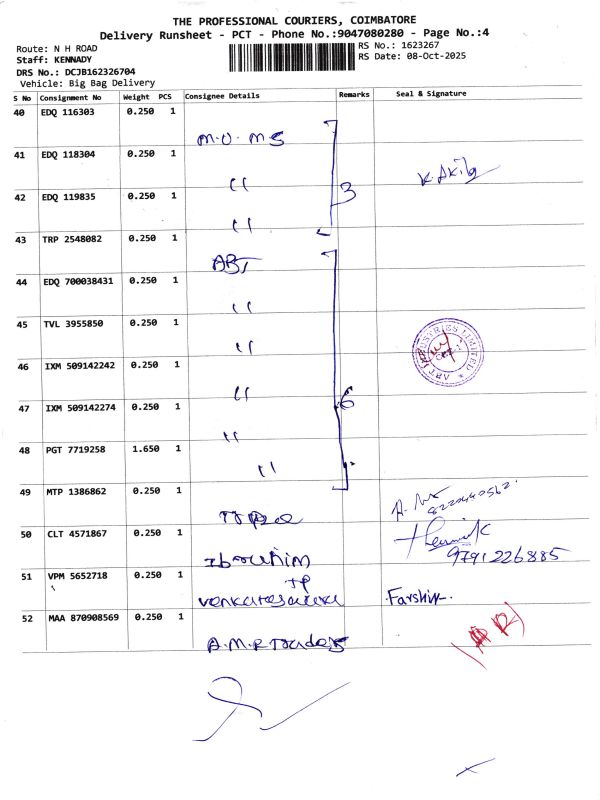 THE PROFESSIONAL COURIERS, COIMBATORE
Delivery Runsheet - PCT - Phone No.:9047080280 - Page No.:4
Route: N H ROAD
RS No.: 1623267
Staff: KENNADY
RS Date: 08-Oct-2025
DRS No.: DCJB162326704
Vehicle: Big Bag Delivery
S No Consignment No Weight PCS Consignee Details Remarks Seal & Signature
40 EDQ 116303 0.250 1 M.O.MS
41 EDQ 118304 0.250 1 " K.Akila
42 EDQ 119835 0.250 1 " 3
43 TRP 2548082 0.250 1 ABT
44 EDQ 700038431 0.250 1 "
45 TVL 3955850 0.250 1 " ABT INDUSTRIES LIMITED
46 IXM 509142242 0.250 1 "
47 IXM 509142274 0.250 1 " 6
48 PGT 7719258 1.650 1 "
49 MTP 1386862 0.250 1
50 CLT 4571867 0.250 1 Ibrahim 9791226885
51 VPM 5652718 0.250 1
52 MAA 870908569 0.250 1